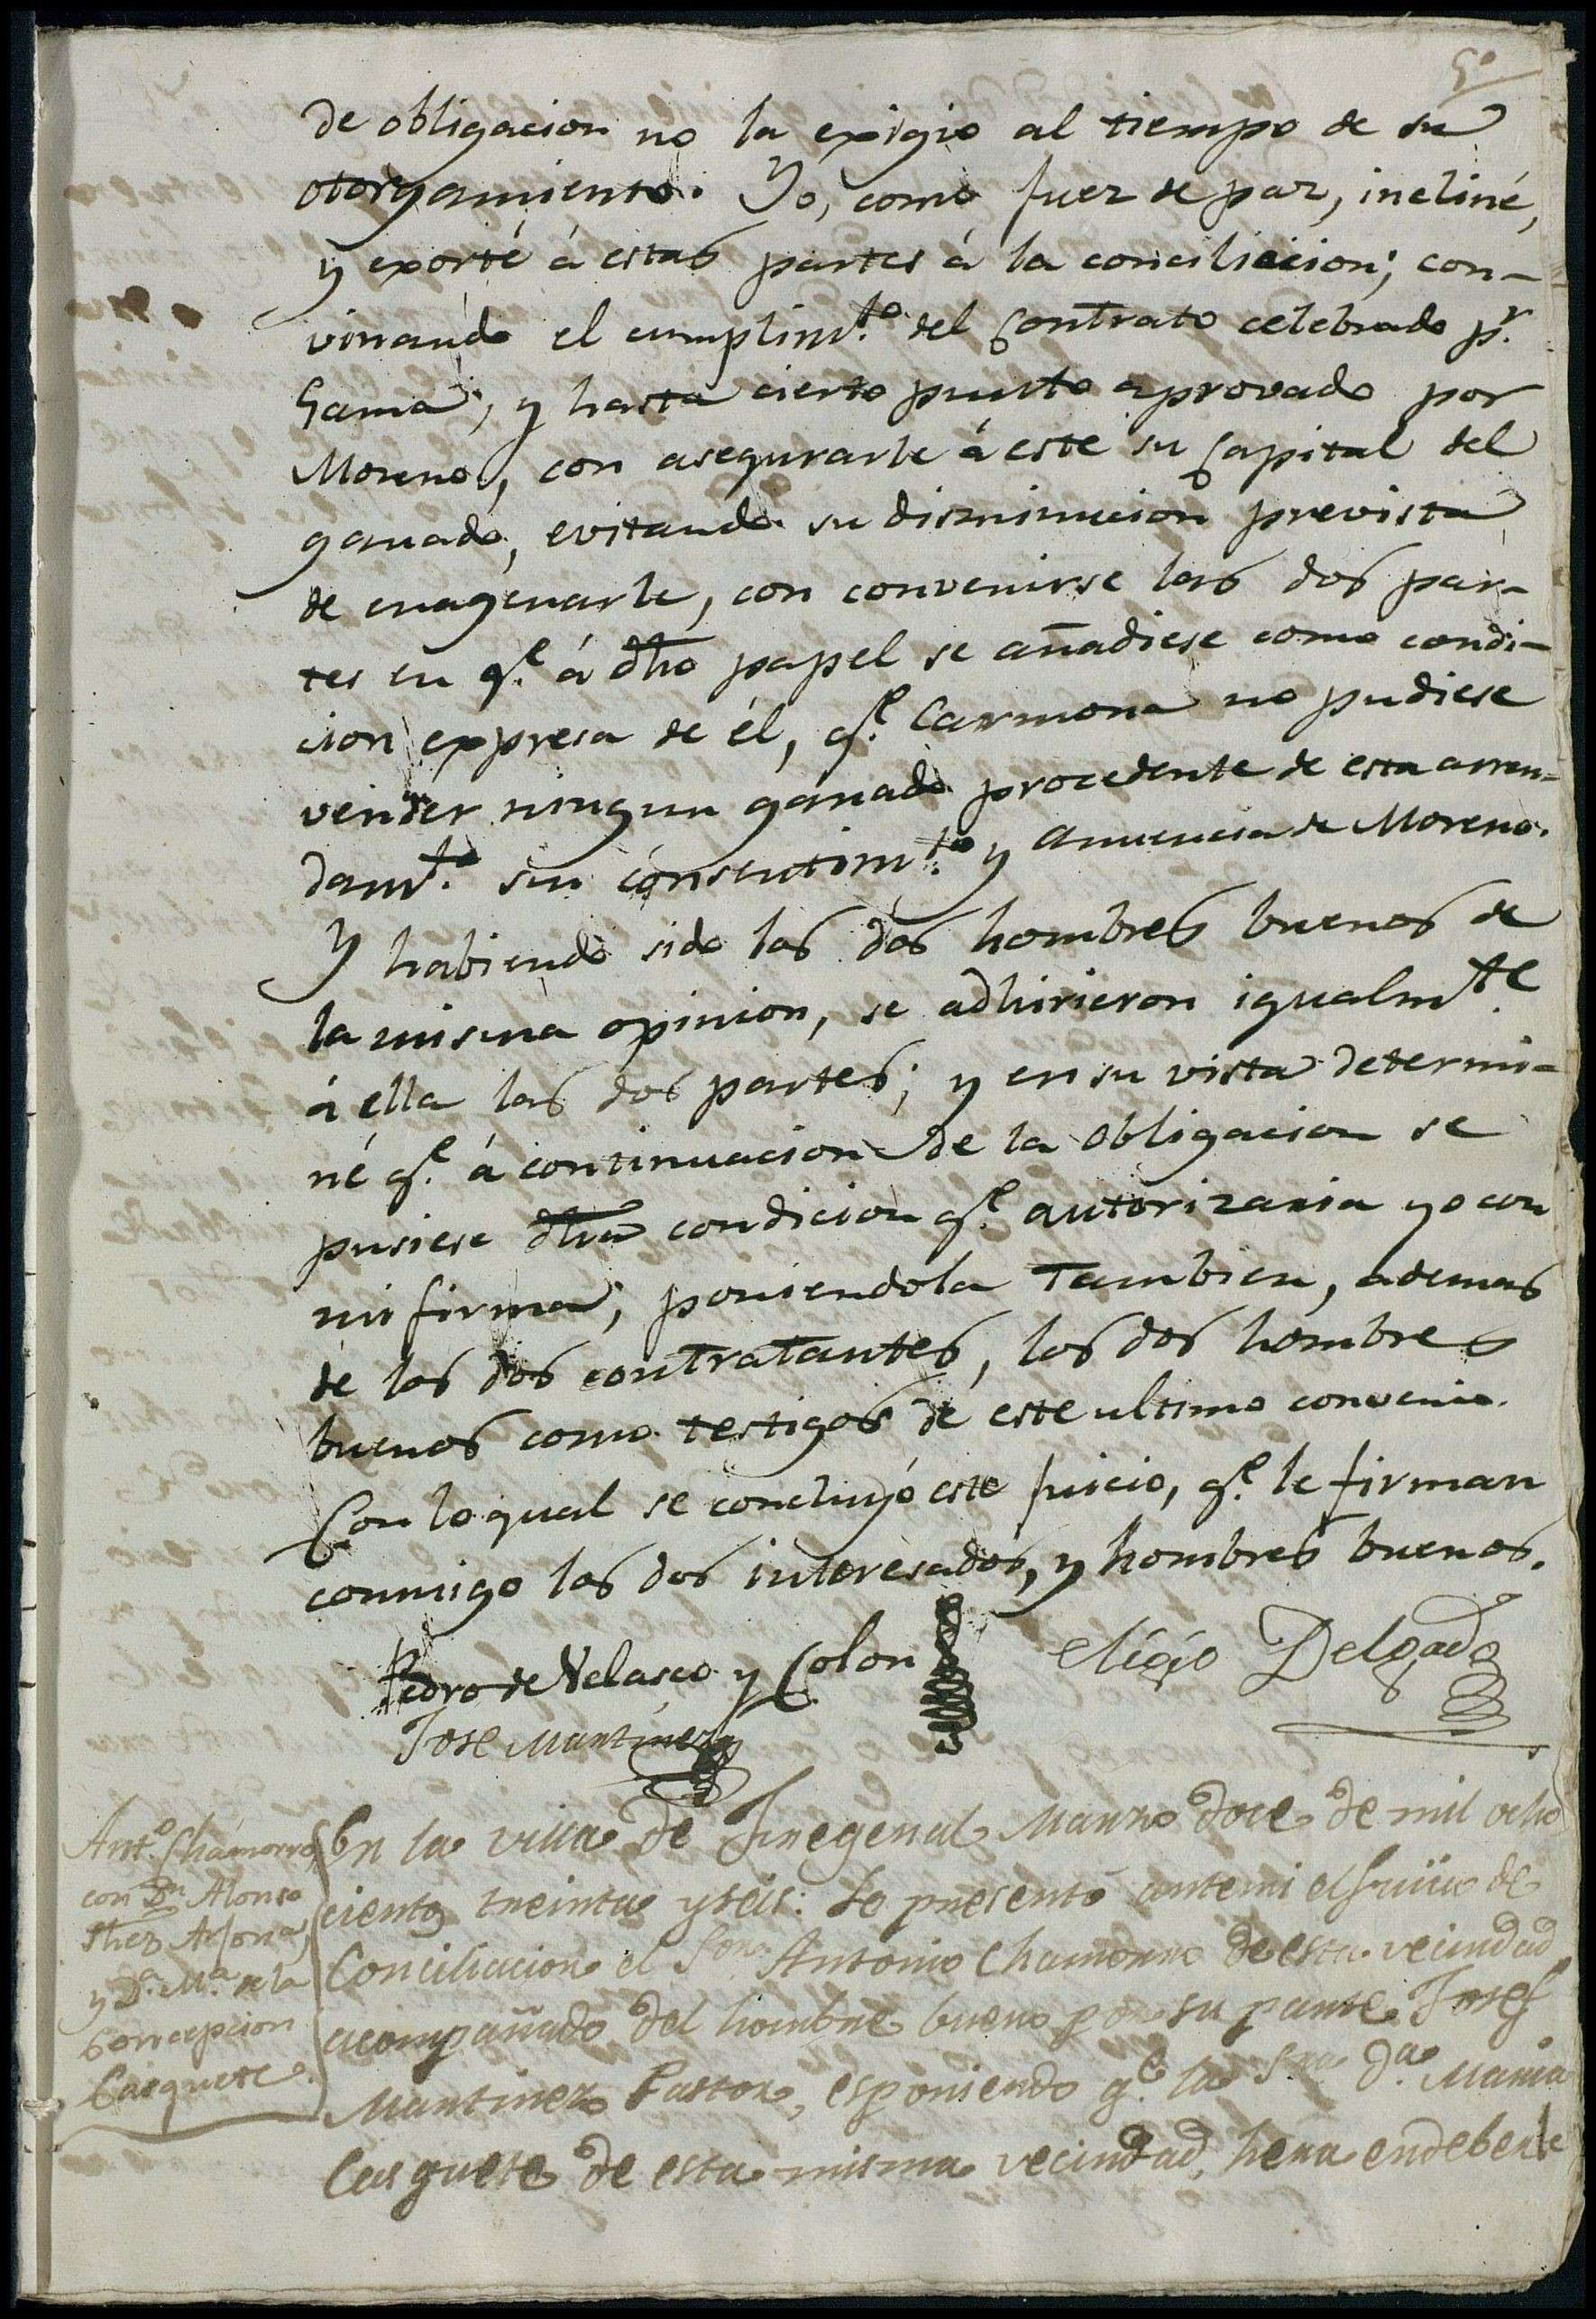 5º
de obligacion no la exigio al tiempo de su
otorgamiento. Yo, como Juez de paz, incliné,
y exorté á estas partes á la conciliacion; con-
vinando el cumplimto. del Contrato celebrado pr.
Gama; y hasta cierto punto aprovado por
Moreno, con asegurarle á este su Capital del
ganado, evitando su disminucion prevista
de enagenarle, con convenirse las dos par-
tes en qe. á dho papel se añadiese como condi-
cion expresa de él, qe. Carmona no pudiese
vender ningun ganado procedente de esta arren-
damto. sin consentimto. y anuencia de Moreno.
Y habiendo sido los dos hombres buenos de
la misma opinion, se adhirieron igualmte.
á ella las dos partes; y en su vista determi-
né qe. á continuacion de la obligacion se
pusiese dha condicion qe. autorizaria yo con
mi firma; poniendola tambien, ademas
de los dos contratantes, los dos hombres
buenos como testigos de este ultimo convenio.
Con lo qual se concluyó este juicio, qe. le firman
conmigo los dos interesados, y hombres buenos.
Pedro de Velasco y Colon
Eligio Delgado
Jose Martinez
Anto. Chamorro,
con Dn. Alonso
Shez Arjona,
y Da. Ma. de la
Concepcion
Casquete.
En la villa de Fregenal Marzo doce de mil ocho
ciento treinta y seis: Se presentó ante mi el Juicio de
Conciliacion el Antonio Chamorro de esta vecindad
acompañado del hombre bueno por su parte Josef
Martinez Pastor, esponiendo qe. la Sra. Da. Maria
Casquete de esta misma vecindad, hera endeberle